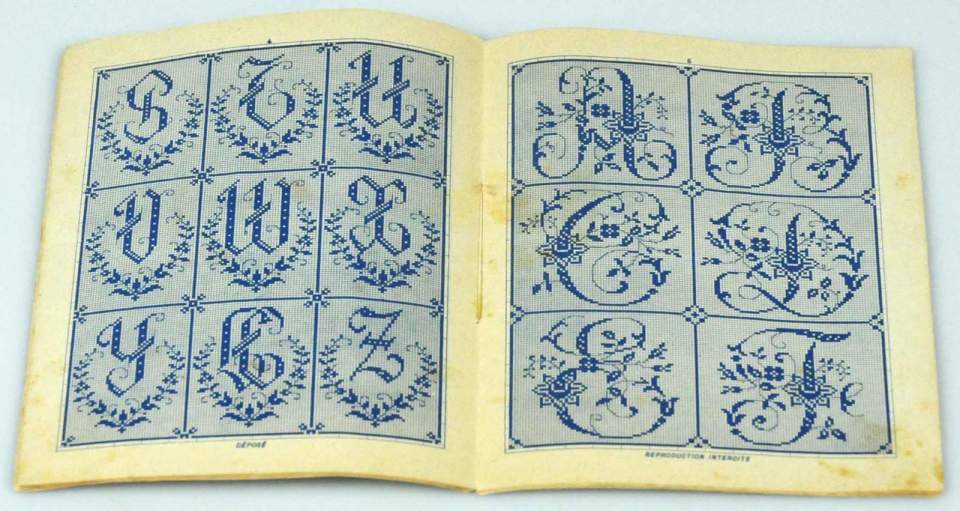 4
S T U
V W X
Y Z
DÉPOSÉ
5
A B
C D
E F
REPRODUCTION INTERDITE